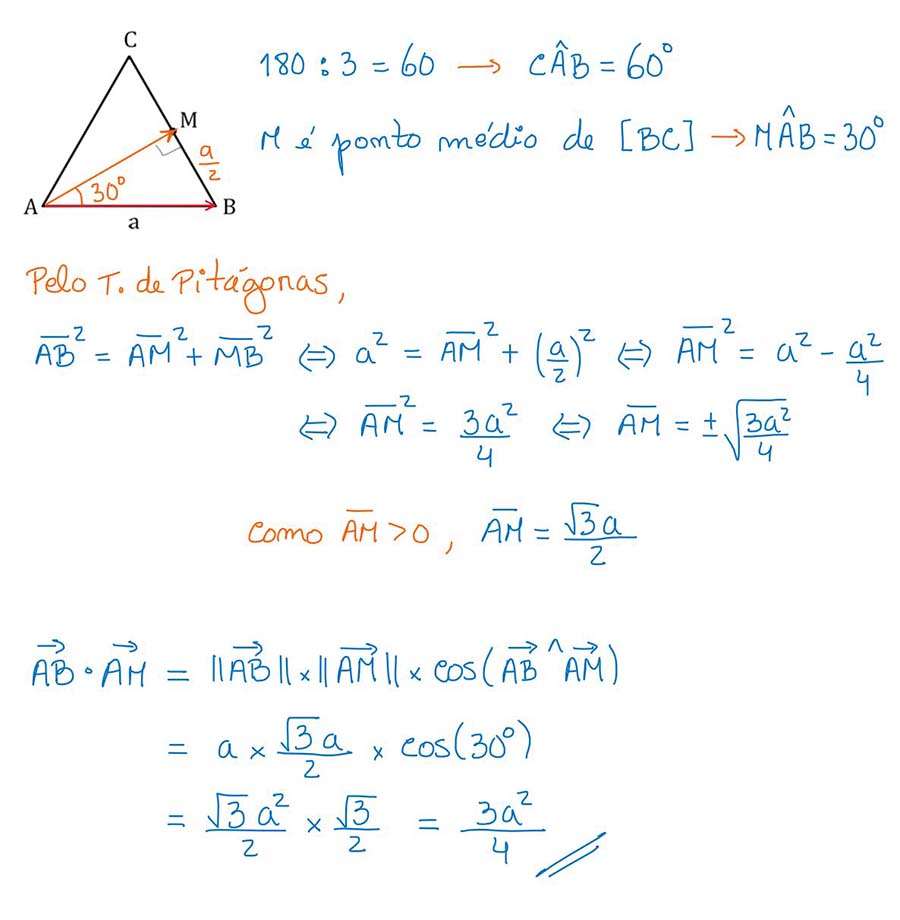 C
M
A
B
a
30°
a/2
180 : 3 = 60 → CÂB = 60°
M é ponto médio de [BC] → MÂB = 30°
Pelo T. de Pitágoras,
A̅B̅² = A̅M̅² + M̅B̅² ⇔ a² = A̅M̅² + (a/2)² ⇔ A̅M̅² = a² - a²/4
⇔ A̅M̅² = 3a²/4 ⇔ A̅M̅ = ±√(3a²/4)
Como A̅M̅ > 0, A̅M̅ = √3a/2
AB⃗ · AM⃗ = ||AB⃗|| × ||AM⃗|| × cos(AB⃗ ^ AM⃗)
= a × √3a/2 × cos(30°)
= √3a²/2 × √3/2 = 3a²/4